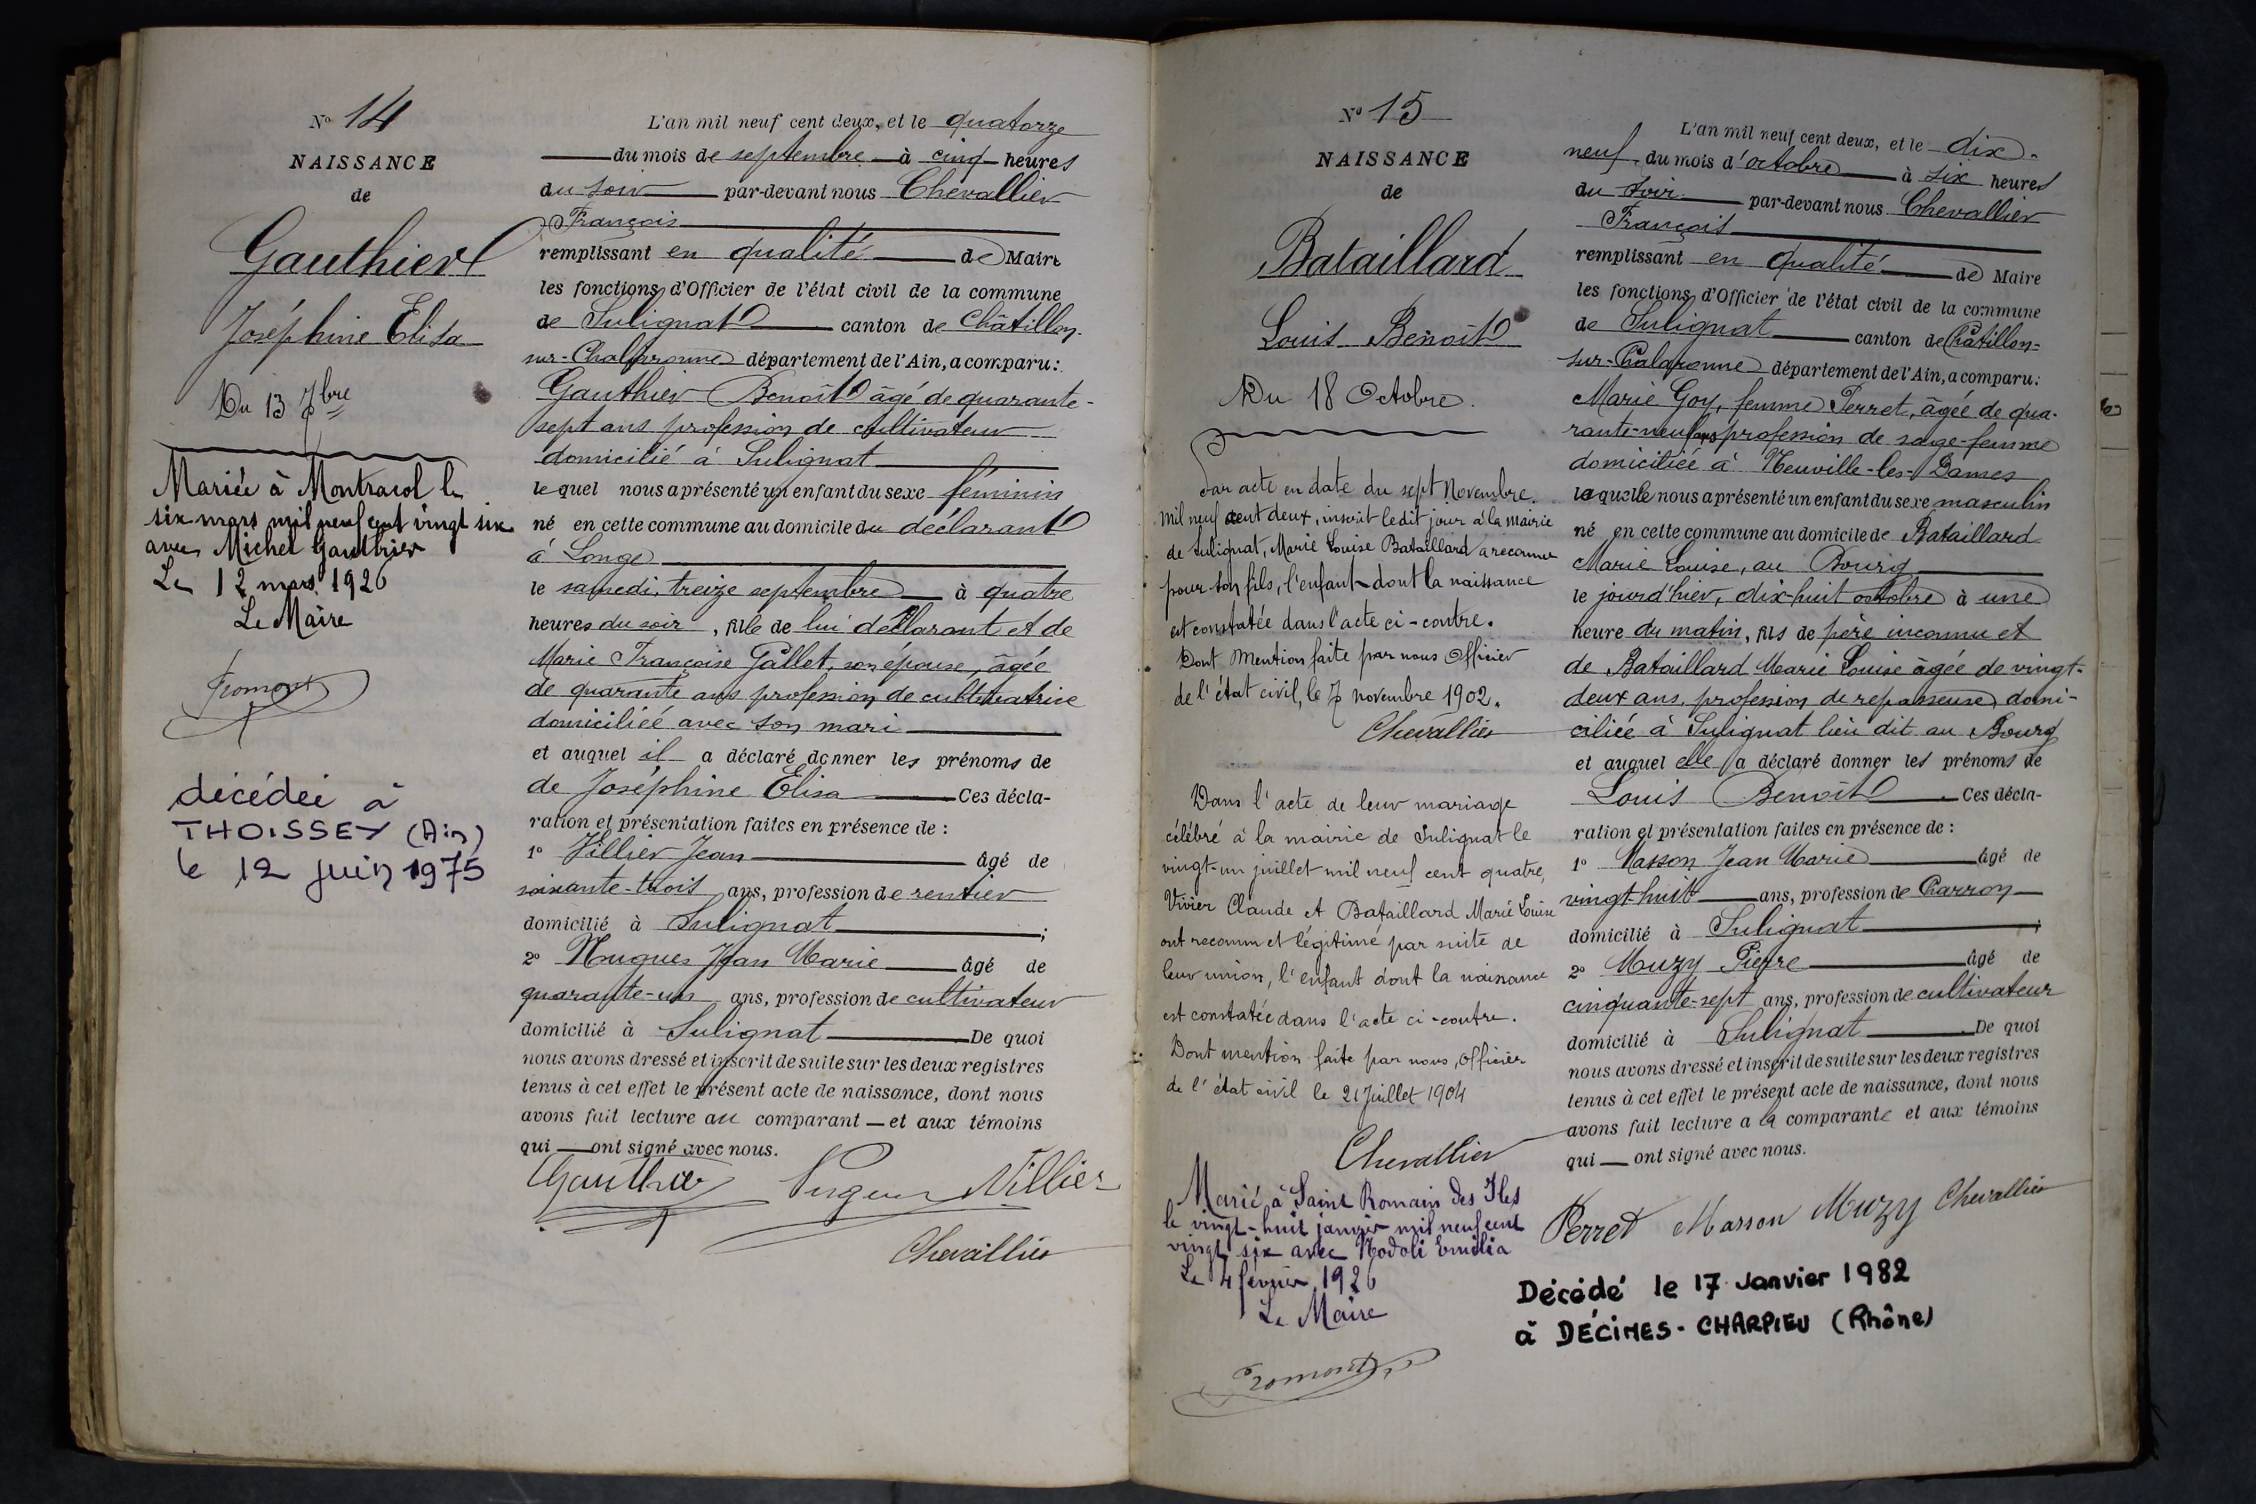 N° 14
NAISSANCE
de
Gauthier
Joséphine Elisa
Du 13 7bre
Mariée à Montracol le
six mars mil neuf cent vingt six
avec Michel Gauthier
Le 12 mars 1926
Le Maire
Fromont
décédée à
THOISSEY (Ain)
le 12 juin 1975
L'an mil neuf cent deux, et le quatorze
du mois de septembre à cinq heures
du soir par-devant nous Chevallier
François
remplissant en qualité de Maire
les fonctions d'Officier de l'état civil de la commune
de Sulignat canton de Châtillon-
sur-Chalaronne département de l'Ain, a comparu:
Gauthier Benoît âgé de quarante-
sept ans profession de cultivateur
domicilié à Sulignat
lequel nous a présenté un enfant du sexe féminin
né en cette commune au domicile du déclarant
à Longe
le samedi, treize septembre à quatre
heures du soir, fille de lui déclarant et de
Marie Françoise Gallet, son épouse, âgée
de quarante ans profession de cultivatrice
domiciliée avec son mari
et auquel il a déclaré donner les prénoms de
de Joséphine Elisa Ces décla-
ration et présentation faites en présence de :
1° Villier Jean âgé de
soixante-trois ans, profession de rentier
domicilié à Sulignat ;
2° Hugues Jean Marie âgé de
quarante-un ans, profession de cultivateur
domicilié à Sulignat De quoi
nous avons dressé et inscrit de suite sur les deux registres
tenus à cet effet le présent acte de naissance, dont nous
avons fait lecture au comparant et aux témoins
qui ont signé avec nous.
Gauthier Villier
Chevallier
N° 15
NAISSANCE
de
Bataillard
Louis Benoît
Du 18 Octobre.
Par acte en date du sept Novembre
mil neuf cent deux, inscrit ledit jour à la mairie
de Sulignat, Marie Louise Bataillard a reconnu
pour son fils, l'enfant dont la naissance
est constatée dans l'acte ci-contre.
Dont Mention faite par nous Officier
de l'état civil, le 7 novembre 1902.
Chevallier
Dans l'acte de leur mariage
célébré à la mairie de Sulignat le
vingt-un juillet mil neuf cent quatre,
Vivier Claude et Bataillard Marie Louise
ont reconnu et légitimé par suite de
leur union, l'enfant dont la naissance
est constatée dans l'acte ci-contre.
Dont mention faite par nous, officier
de l'état civil le 21 Juillet 1904
Chevallier
Marié à Saint Romain des Iles
le vingt-huit janvier mil neuf cent
vingt six avec Nodoli Emilia
Le 4 février 1926
Le Maire
Fromont
L'an mil neuf cent deux, et le dix-
neuf du mois d'octobre à six heures
du soir par-devant nous Chevallier
François
remplissant en qualité de Maire
les fonctions d'Officier de l'état civil de la commune
de Sulignat canton de Châtillon-
sur-Chalaronne département de l'Ain, a comparu:
Marie Goy, femme Perret, âgée de qua-
rante-neuf ans profession de sage-femme
domiciliée à Neuville-les-Dames
laquelle nous a présenté un enfant du sexe masculin
né en cette commune au domicile de Bataillard
Marie Louise, au Bourg
le jourd'hier, dix-huit octobre à une
heure du matin, fils de père inconnu et
de Bataillard Marie Louise âgée de vingt-
deux ans, profession de repasseuse, domi-
ciliée à Sulignat lieu dit au Bourg
et auquel elle a déclaré donner les prénoms de
Louis Benoît Ces décla-
ration et présentation faites en présence de :
1° Masson Jean Marie âgé de
vingt-huit ans, profession de Charron
domicilié à Sulignat ;
2° Muzy Pierre âgé de
cinquante-sept ans, profession de cultivateur
domicilié à Sulignat De quoi
nous avons dressé et inscrit de suite sur les deux registres
tenus à cet effet le présent acte de naissance, dont nous
avons fait lecture à la comparante et aux témoins
qui ont signé avec nous.
Perret Masson Muzy Chevallier
Décédé le 17 Janvier 1982
à DÉCINES-CHARPIEU (Rhône)